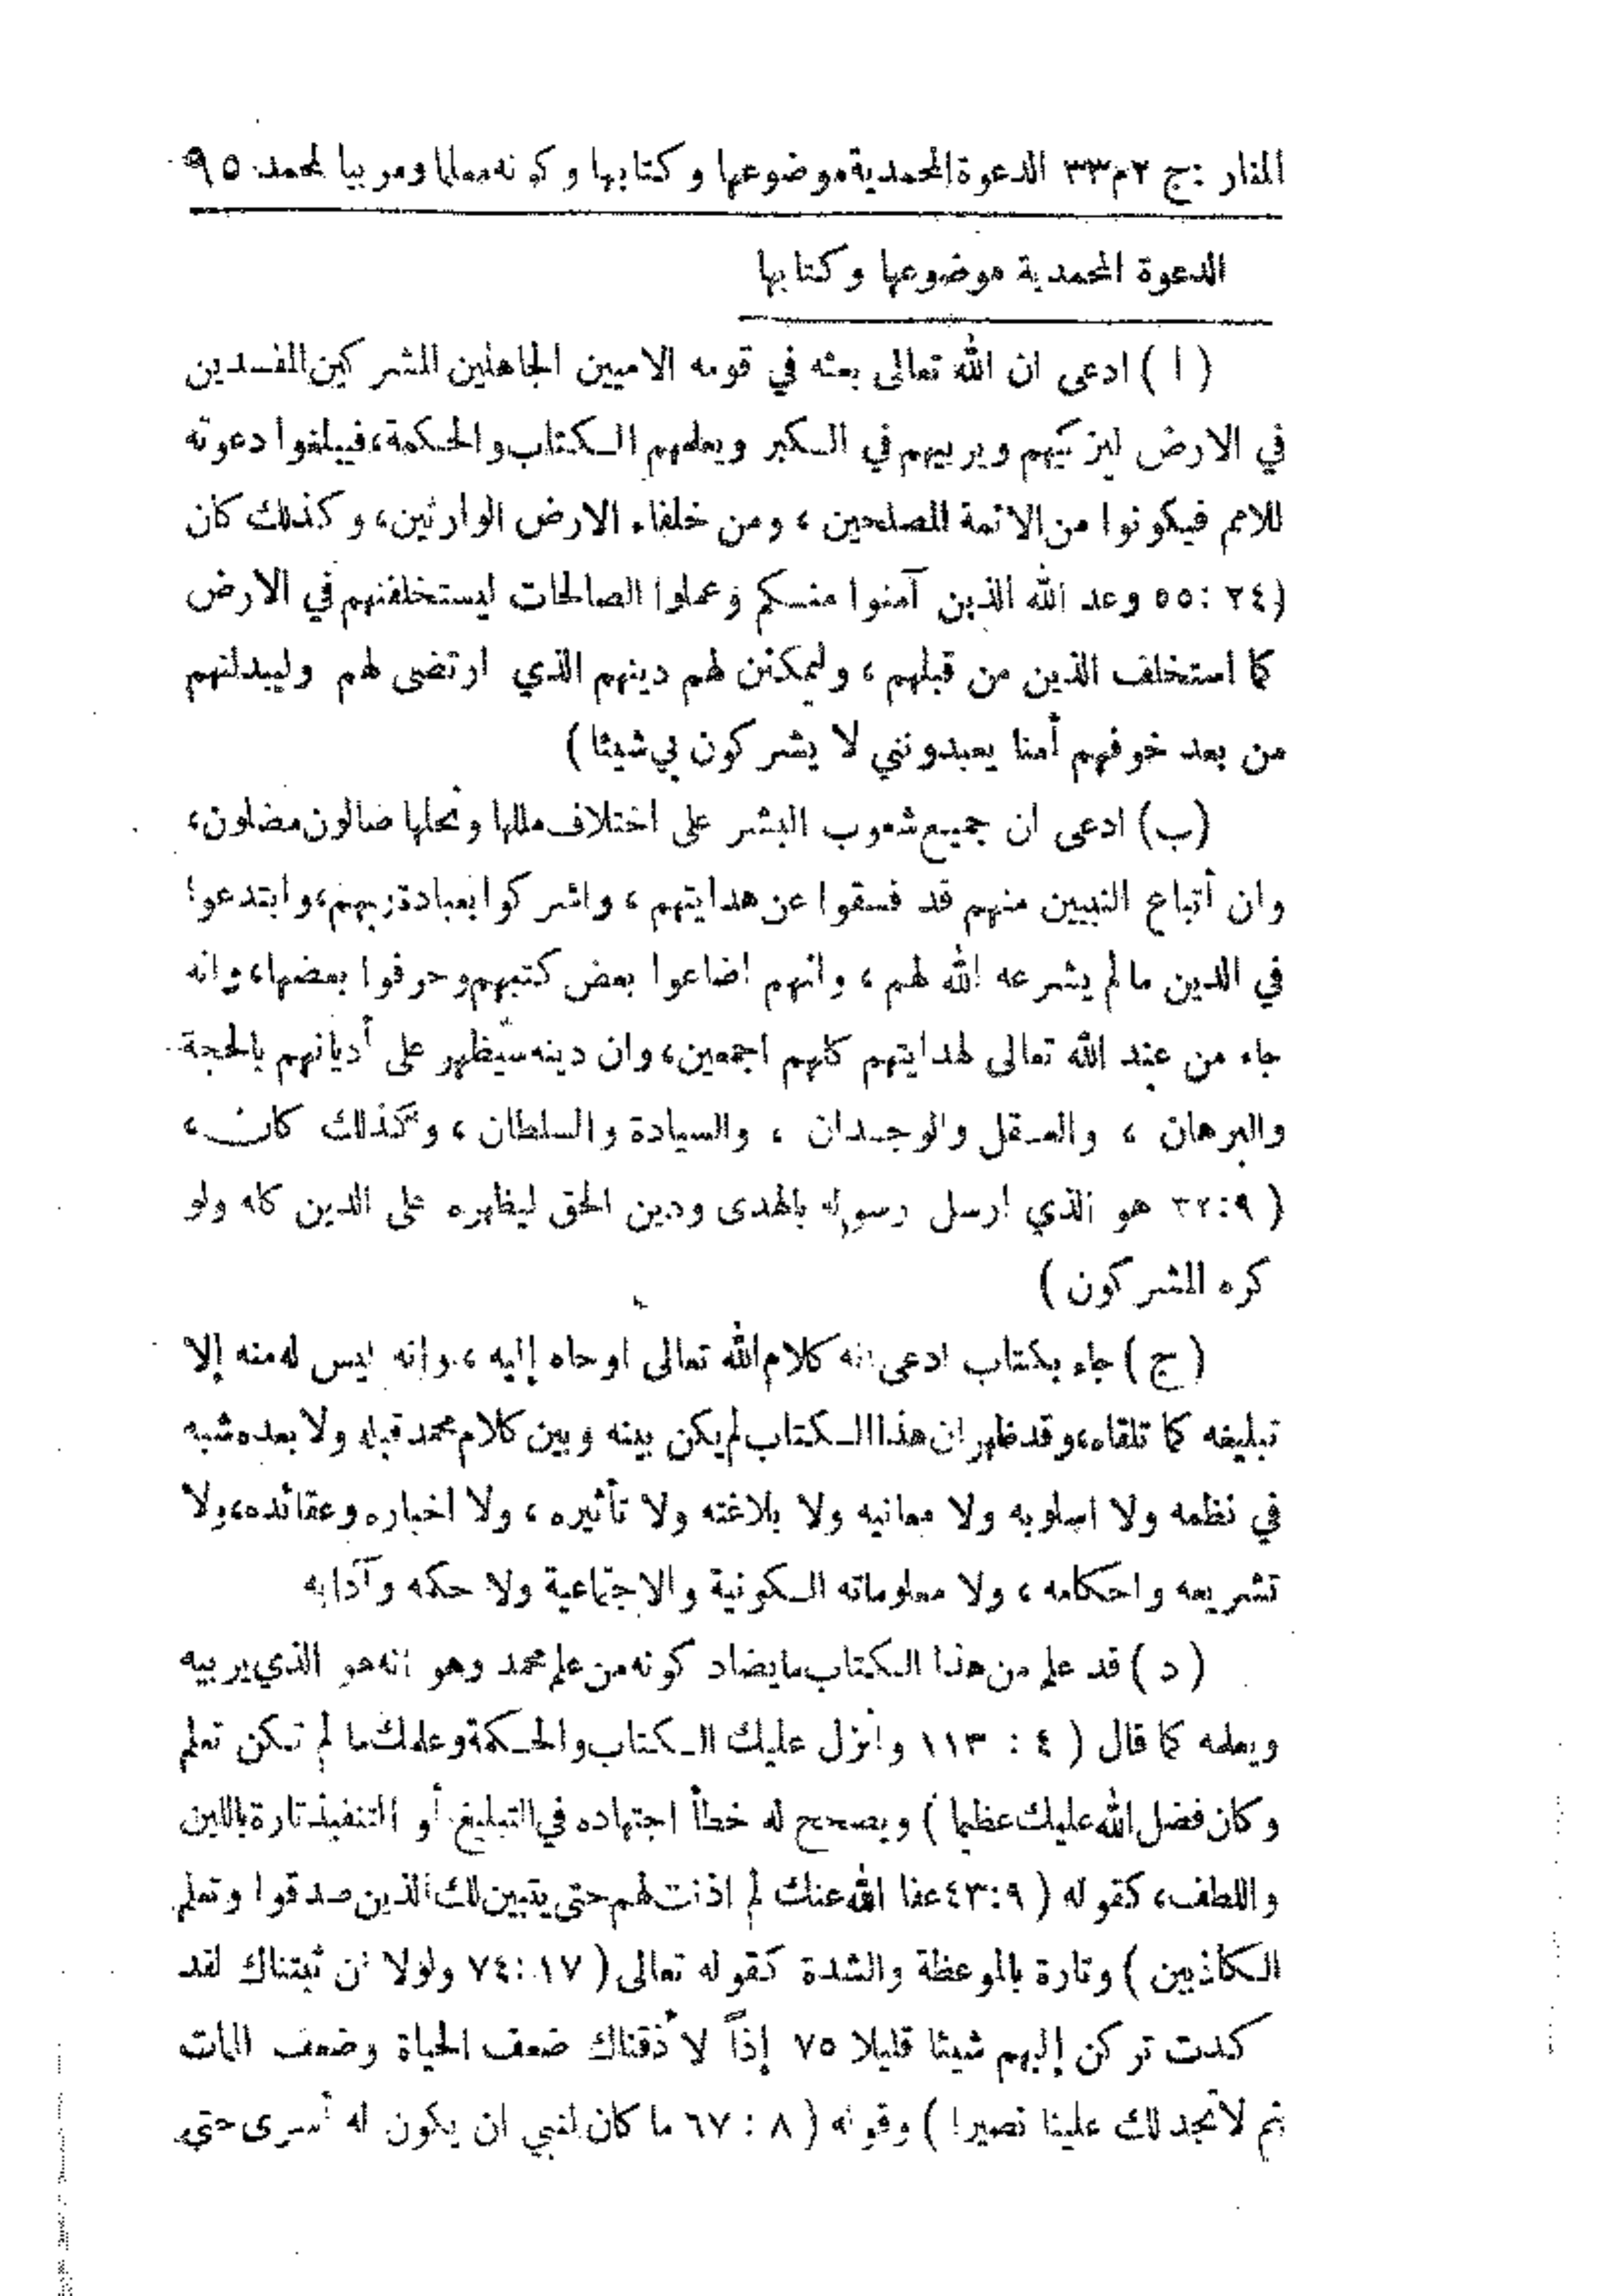 المنار : ج ٢ م ٣٣ الدعوة المحمدية موضوعها وكتابها وكونه معلما ومربيا لمحمد ٩٥
الدعوة المحمدية موضوعها وكتابها
( ا ) ادعى ان الله تعالى بعثه في قومه الاميين الجاهلين المشركين المفسدين
في الارض ليزكيهم ويربيهم في الكبر ويعلمهم الكتاب والحكمة، فيبلغوا دعوته
للامم فيكونوا من الائمة المصلحين ، ومن خلفاء الارض الوارثين، وكذلك كان
(٢٤ : ٥٥ وعد الله الذين آمنوا منكم وعملوا الصالحات ليستخلفنهم في الارض
كما استخلف الذين من قبلهم ، وليمكنن لهم دينهم الذي ارتضى لهم وليبدلنهم
من بعد خوفهم أمنا يعبدونني لا يشركون بي شيئا )
(ب) ادعى ان جميع شعوب البشر على اختلاف مللها ونحلها ضالون مضلون،
وان أتباع النبيين منهم قد فسقوا عن هدايتهم ، واشركوا بعبادة ربهم، وابتدعوا
في الدين ما لم يشرعه الله لهم ، وانهم اضاعوا بعض كتبهم وحرفوا بعضها، وانه
جاء من عند الله تعالى لهدايتهم كلهم اجمعين، وان دينه سيظهر على أديانهم بالحجة
والبرهان ، والعقل والوجدان ، والسيادة والسلطان ، وكذلك كان ،
( ٩ : ٣٢ هو الذي ارسل رسوله بالهدى ودين الحق ليظهره على الدين كله ولو
كره المشركون )
( ج ) جاء بكتاب ادعى انه كلام الله تعالى اوحاه إليه ، وانه ليس له منه إلا
تبليغه كما تلقاه، وقد ظهر ان هذا الكتاب لم يكن بينه وبين كلام محمد قبله ولا بعده شبه
في نظمه ولا اسلوبه ولا معانيه ولا بلاغته ولا تأثيره ، ولا اخباره وعقائده، ولا
تشريعه واحكامه ، ولا معلوماته الكونية والاجتماعية ولا حكمه وآدابه
( د ) قد علم من هذا الكتاب ما يضاد كونه من علم محمد وهو انه هو الذي يربيه
ويعلمه كما قال ( ٤ : ١١٣ وأنزل عليك الكتاب والحكمة وعلمك ما لم تكن تعلم
وكان فضل الله عليك عظيما ) ويصحح له خطأ اجتهاده في التبليغ أو التنفيذ تارة باللين
واللطف، كقوله ( ٩ : ٤٣ عفا الله عنك لم اذنت لهم حتى يتبين لك الذين صدقوا وتعلم
الكاذبين ) وتارة بالموعظة والشدة كقوله تعالى ( ١٧ : ٧٤ ولولا ان ثبتناك لقد
كدت تركن إليهم شيئا قليلا ٧٥ إذاً لأذقناك ضعف الحياة وضعف الممات
ثم لا تجد لك علينا نصيرا ) وقوله ( ٨ : ٦٧ ما كان لنبي ان يكون له أسرى حتى